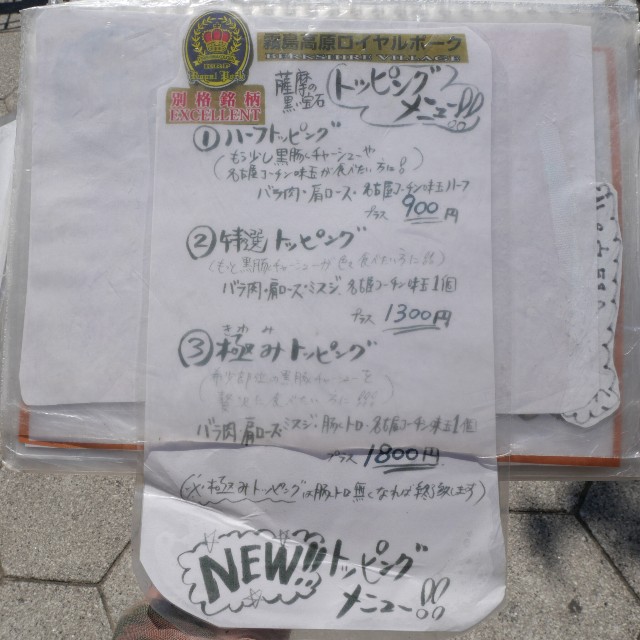 霧島高原ロイヤルポーク
別格銘柄
EXCELLENT
薩摩の黒宝石 トッピングメニュー!!
① ハーフトッピング
(もう少し黒豚チャーシューや
名古屋コーチン味玉が食べたい方は!)
バラ肉・肩ロース・名古屋コーチン味玉ハーフ
プラス 900円
② 特選トッピング
バラ肉・肩ロース・ミスジ・名古屋コーチン味玉1個
プラス 1300円
③ 極み トッピング
きわみ
バラ肉・肩ロース・ミスジ・豚トロ・名古屋コーチン味玉1個
プラス 1800円
(※極みトッピングは豚トロ無くなれば終了致します)
NEW!!! トッピング
メニュー!!